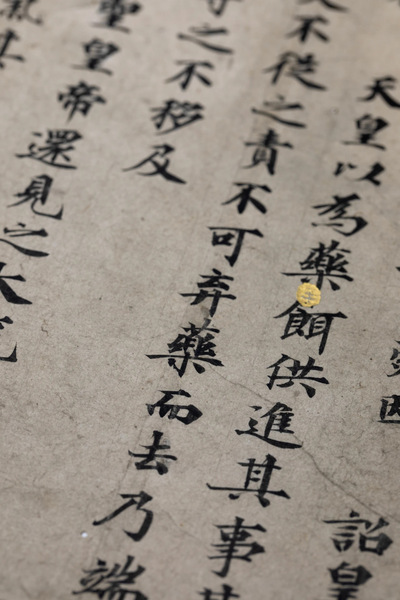 詔皇
天皇以為藥餌供進其事
不従之責不可弃藥而去乃端
之不移及
聖皇帝還見之
其